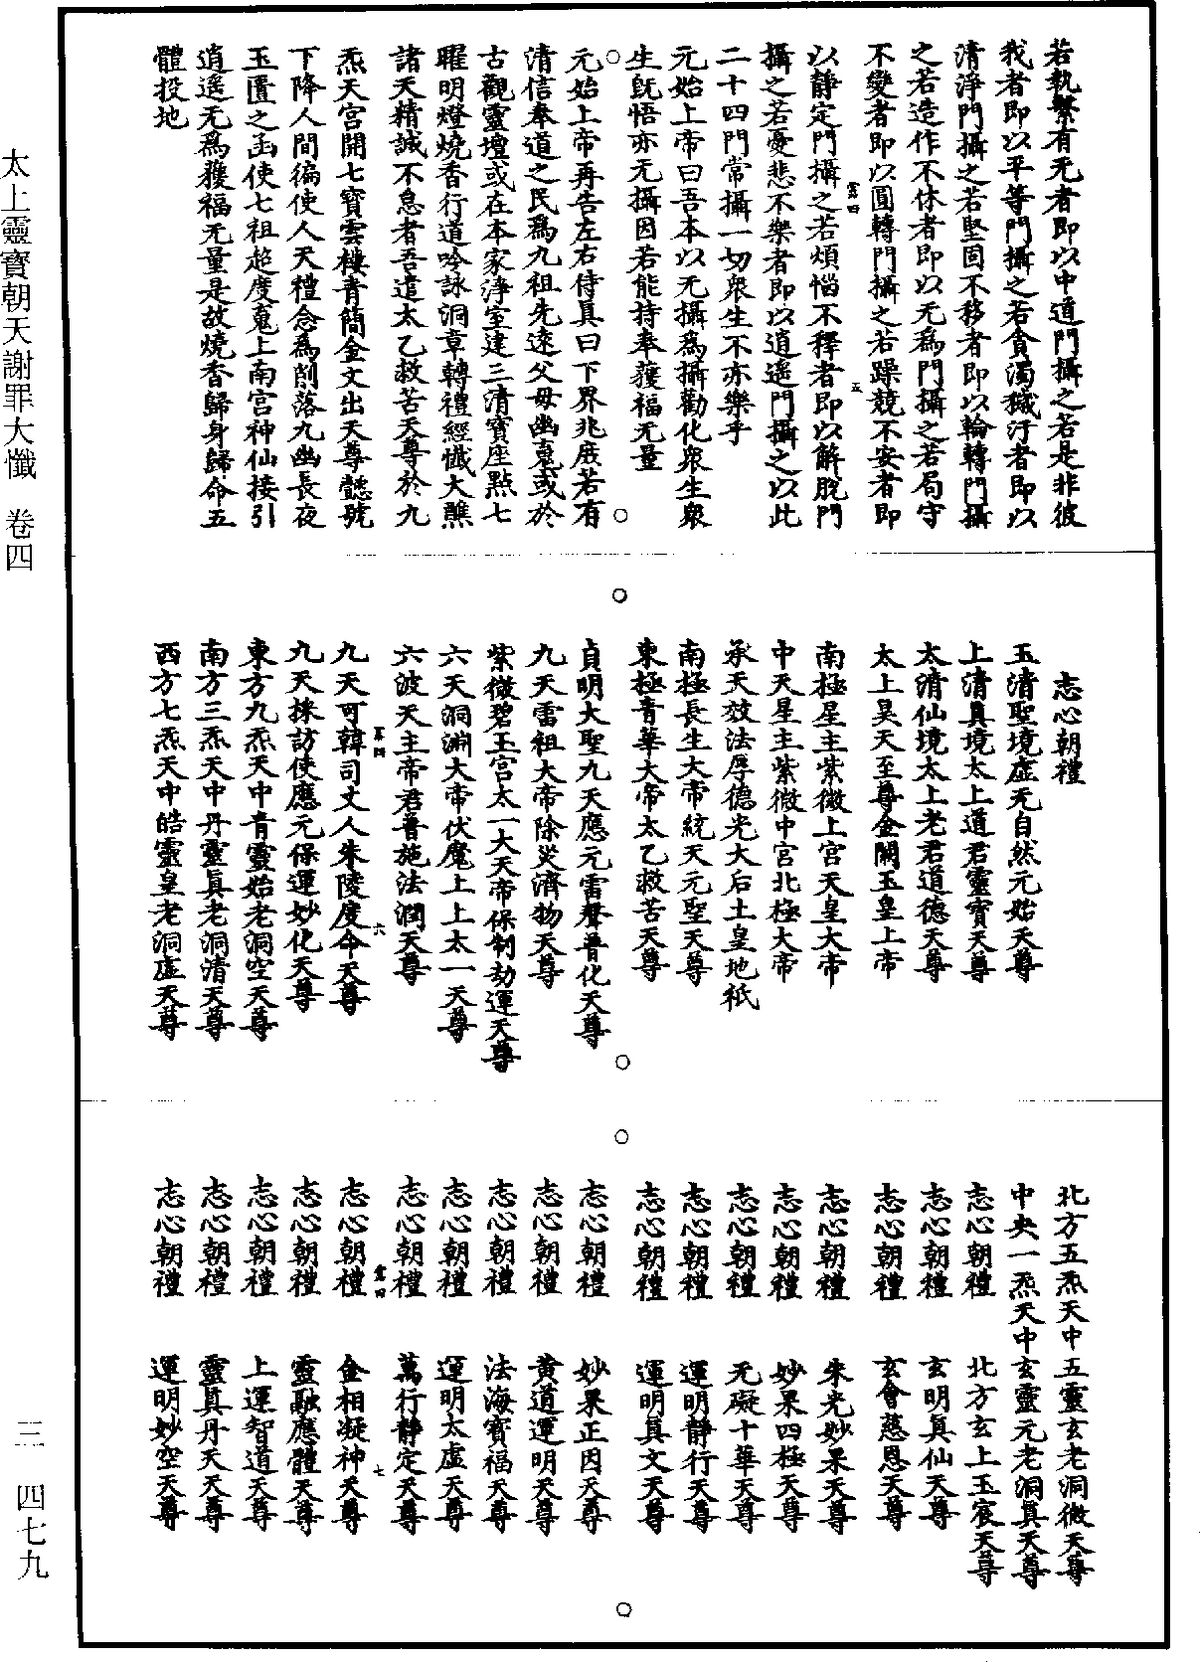 若執繫有无者即以中道門攝之若是非彼
我者即以平等門攝之若貪濁穢汙者即以
清淨門攝之若堅固不移者即以輪轉門攝
之若造作不休者即以无爲門攝之若局守
不變者即以圓轉門攝之若躁競不安者即
以靜定門攝之若煩惱不釋者即以解脫門
攝之若憂悲不樂者即以逍遥門攝之以此
二十四門常攝一切衆生不亦樂乎
元始上帝曰吾本以无攝爲攝勸化衆生衆
生既悟亦无攝因若能持奉獲福无量
元始上帝再告左右侍真曰下界兆庶若有
清信奉道之民爲九祖先遠父母幽夐或於
古觀靈壇或在本家淨室建三清寶座點七
曜明燈燒香行道吟詠洞章轉禮經懺大醮
諸天精誠不怠者吾遣太乙救苦天尊於九
炁天宮開七寶雲樓青簡金文出天尊懿號
下降人間徧使人天禮念爲削落九幽長夜
玉匱之函使七祖超度夐上南宮神仙接引
逍遥无爲獲福无量是故燒香歸身歸命五
體投地
志心朝禮
玉清聖境虛无自然元始天尊
上清真境太上道君靈寶天尊
太清仙境太上老君道德天尊
太上昊天至尊金闕玉皇上帝
南極星主紫微上宮天皇大帝
中天星主紫微中宮北極大帝
承天效法厚德光大后土皇地祇
南極長生大帝統天元聖天尊
東極青華大帝太乙救苦天尊
貞明大聖九天應元雷聲普化天尊
九天雷祖大帝除災濟物天尊
紫微碧玉宮太一大天帝保制劫運天尊
六天洞淵大帝伏魔上上太一天尊
六波天主帝君普施法潤天尊
九天可韓司丈人朱陵度命天尊
九天採訪使應元保運妙化天尊
東方九炁天中青靈始老洞空天尊
南方三炁天中丹靈真老洞清天尊
西方七炁天中皓靈皇老洞虛天尊
北方五炁天中五靈玄老洞微天尊
中央一炁天中玄靈元老洞真天尊
志心朝禮 北方玄上玉宸天尊
志心朝禮 玄明真仙天尊
志心朝禮 玄會慈恩天尊
志心朝禮 朱光妙果天尊
志心朝禮 妙果四極天尊
志心朝禮 无礙十華天尊
志心朝禮 運明靜行天尊
志心朝禮 運明真文天尊
志心朝禮 妙果正因天尊
志心朝禮 黄道運明天尊
志心朝禮 法海寶福天尊
志心朝禮 運明太虛天尊
志心朝禮 萬行靜定天尊
志心朝禮 金相凝神天尊
志心朝禮 靈融應體天尊
志心朝禮 上運智道天尊
志心朝禮 靈真丹天天尊
志心朝禮 運明妙空天尊
太上靈寶朝天謝罪大懺 卷四
三 四七九